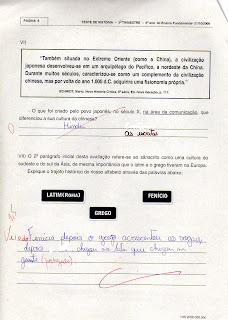 PÁGINA 4
TESTE DE HISTÓRIA - 3º TRIMESTRE - 6º ano do Ensino Fundamental
VII)
"Também situada no Extremo Oriente (como a China), a civilização
japonesa desenvolveu-se em um arquipélago do Pacífico, a nordeste da China.
Durante muitos séculos, caracterizou-se como um complemento da civilização
chinesa, mas por volta do ano 1.000 d.C. adquiriu uma fisionomia própria."
- O que foi criado pelo povo japonês no século X, na área da comunicação, que
diferenciou a sua cultura da chinesa?
VIII) O 2º parágrafo inicial desta avaliação refere-se ao sânscrito como uma cultura do
sudeste e do sul da Ásia, de mesma importância que o latim e o grego tiveram na Europa.
Explique o trajeto histórico do nosso alfabeto através das palavras abaixo:
LATIM (Roma)
FENÍCIO
GREGO
depois o grego acrescentou as vogais
depois chegou no latim que chegou na
gente (português)